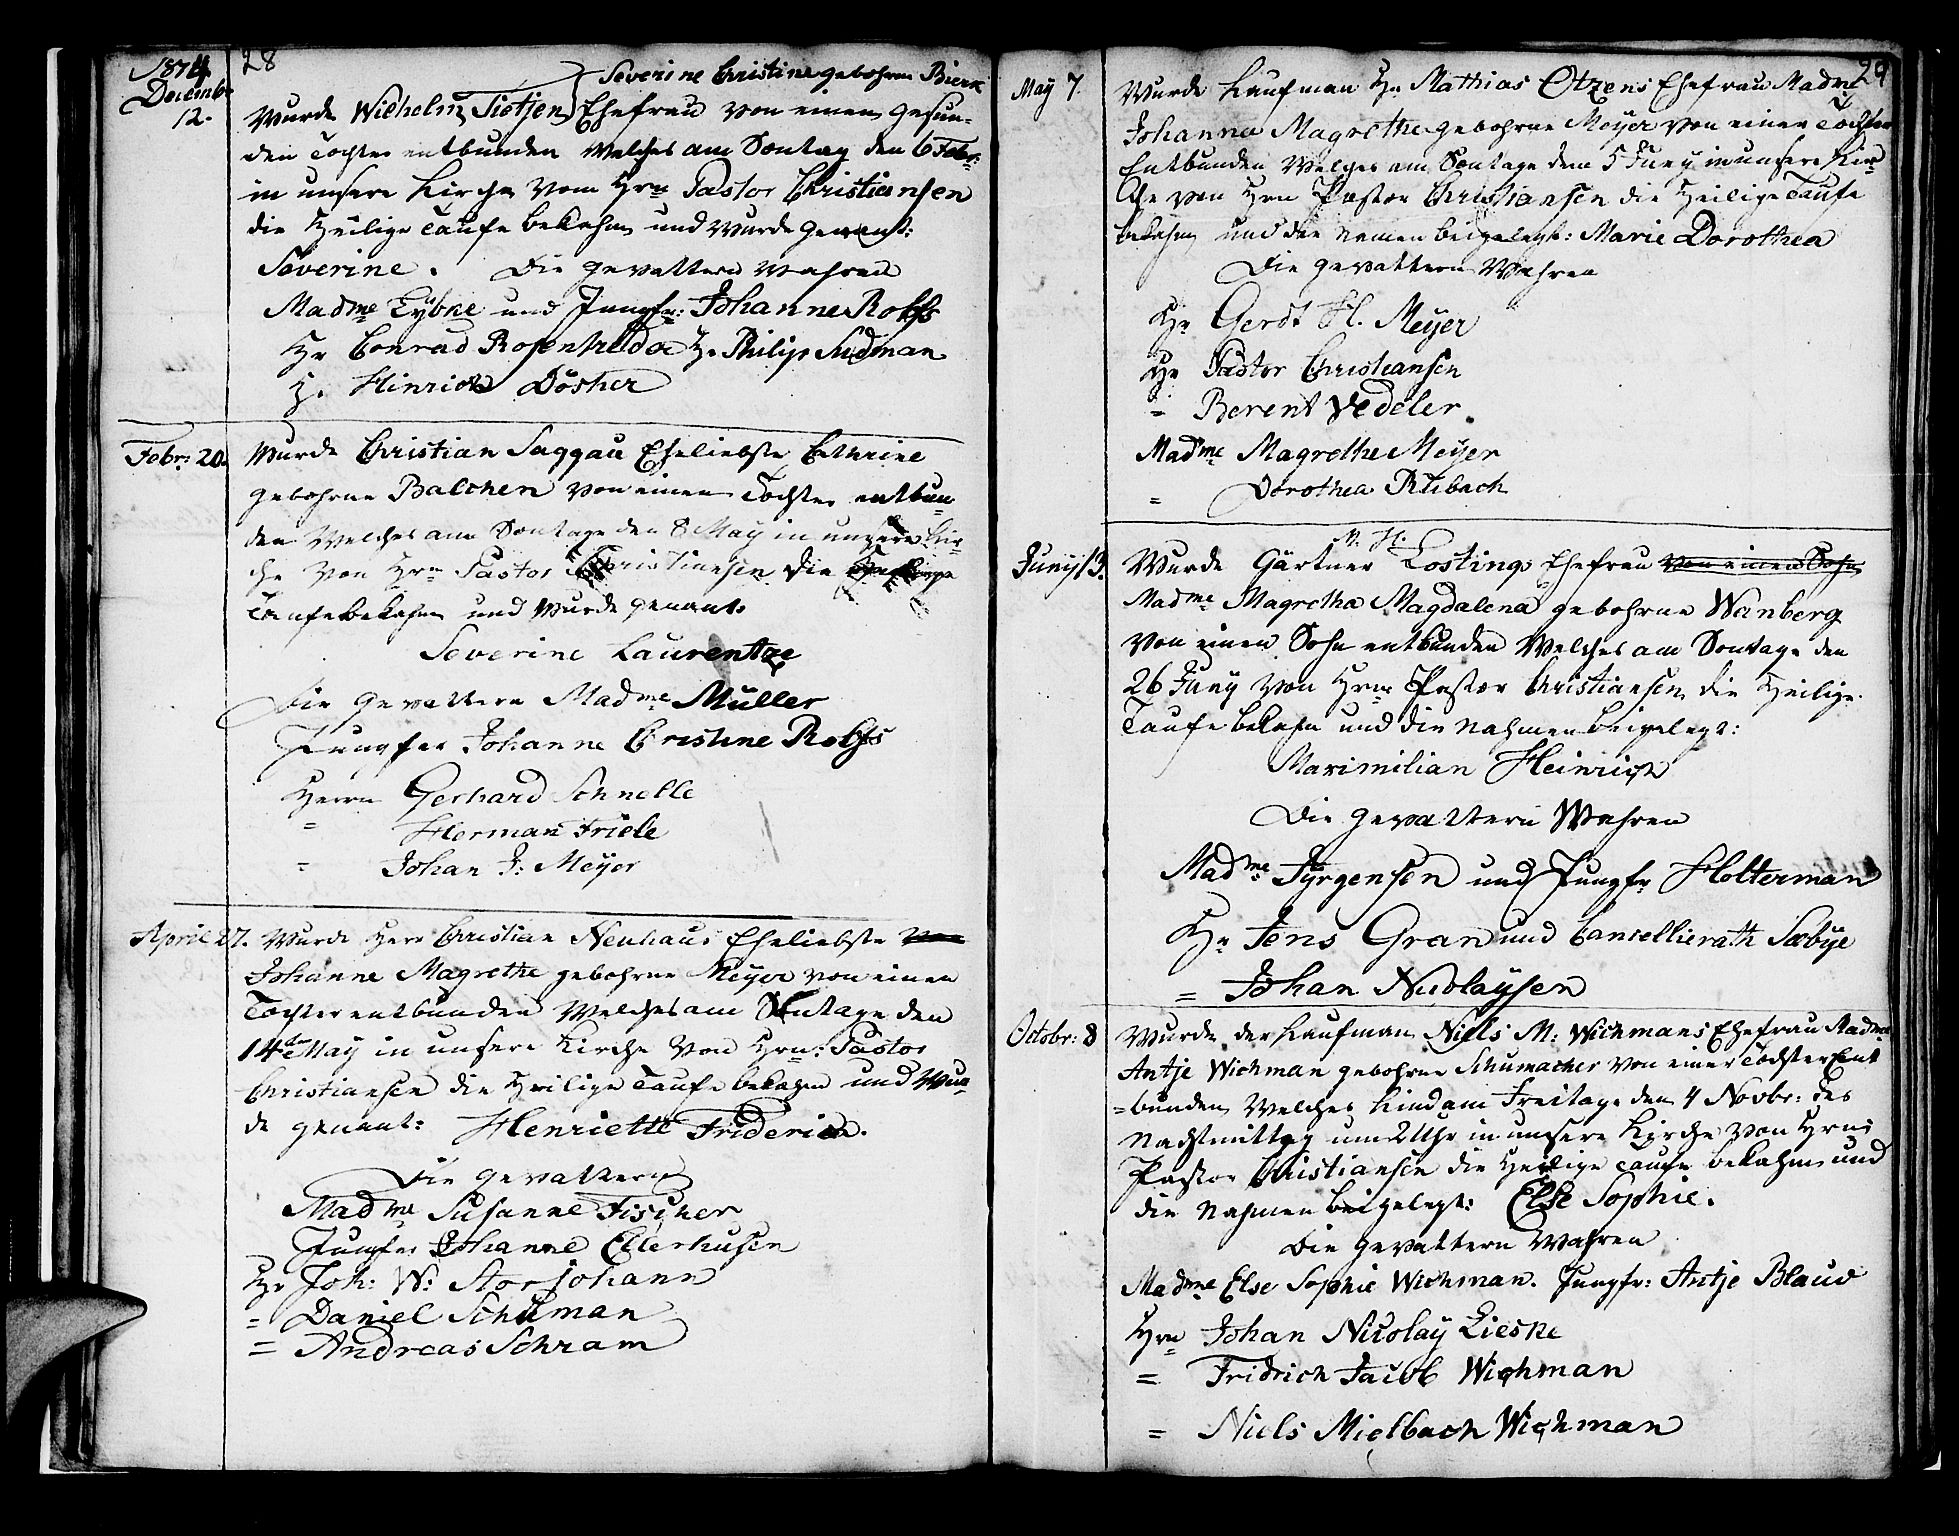 28
1814
Decembr
12.
Severine Christine gebohren Bierk
Wurde Wielhelm Tietjen Ehefrau von einen gesun-
den Tochter entbunden Welches am Sontag den 6 Febr:
in unsere Kirche vom Hrn Pastor Christiansen
die Heilige Taufe bekahm und Wurde genant:
Severine. Die gevattern wahren
Madme Lybke und Jungfr: Johanne Rolfs
Hr Conrad Rosenkilde Hr Philip Sudman
H. Hinrich Döscher
Febr: 20.
Wurde Christian Saggau Eheliebste Cathrine
gebohrne Balchen von einen Tochter entbun
den Welches am Sontage den 8 May in unsere Kir-
che von Hrn Pastor Christiansen die Heilige
Taufe bekahm und Wurde genant:
Severine Laurentze
Die gevattern Madme Müller
Jungfer Johanne Cristine Rolfs
Herrn Gerhard Schnelle
= Herman Friele
= Johan J: Meyer
April 27.
Wurde Herr Christian Neuhaus Eheliebste von
Johanne Magrethe gebohrne Meyer von einen
Tochter entbunden Welches am Sontage den
14ten May in unsere Kirche von Hrn: Pastor
Christiansen die Heilige Taufe bekahm und Wur
de genant: Henriette Friderica.
Die gevattern
Madme Susanne Fischer
Jungfer Johanne Ellerhusen
Hr Joh: W: Storjohann
= Daniel Schuman
= Andreas Schram
29
May 7.
Wurde Kaufman Hr Mathias Otzens Ehefrau Madme
Johanna Magrethe gebohrne Meyer von einen Tochter
Entbunden Welches am Sontage dem 5 Juny in unsere Kir-
che von Hrn Pastor Christiansen die Heilige Taufe
bekahm und die Namen beigelegt: Marie Dorothea
Die gevattern Wahren
Hr Gerdt H. Meyer
Hr Pastor Christiansen
= Berent Vedeler.
Madme Magrethe Meyer
= Dorothea Rübach
Juny 13.
M. H.
Wurde Gärtner Lostings Ehefrau von einen Sohn
Madme Magretha Magdalena gebohrne Wanberg
von einen Sohn entbunden Welches am Sontage den
26 Juny von Hrn Pastor Christiansen die Heilige
Taufe bekahm und die Nahmen beigelegt:
Maximilian Heinrich
Die gevattern Wahren
Madme Jyrgensen und Jungfr Holterman
Hr Jens Gran und Cancellierath Sæbye
= Johan Nicolaysen
Octobr: 8
Wurde der Kaufman Niels M: Wichmans Ehefrau Madme
Antje Wichman gebohrne Schumacher von einer Tochter Ent
=bunden Welches Kind am Freitage den 4 Novbr: des
Nachmittag um 2 Uhr in unsere Kirche von Hrn
Pastor Christiansen die Heilige Taufe bekahm und
die Nahmen beigelegt: Else Sophie.
Die gevattern wahren
Madme Else Sophie Wichman. Jungfr: Antje Blauv
Hrn Johan Nicolay Lieske
= Fridrich Jacob Wichman
= Niels Mielbach Wichman